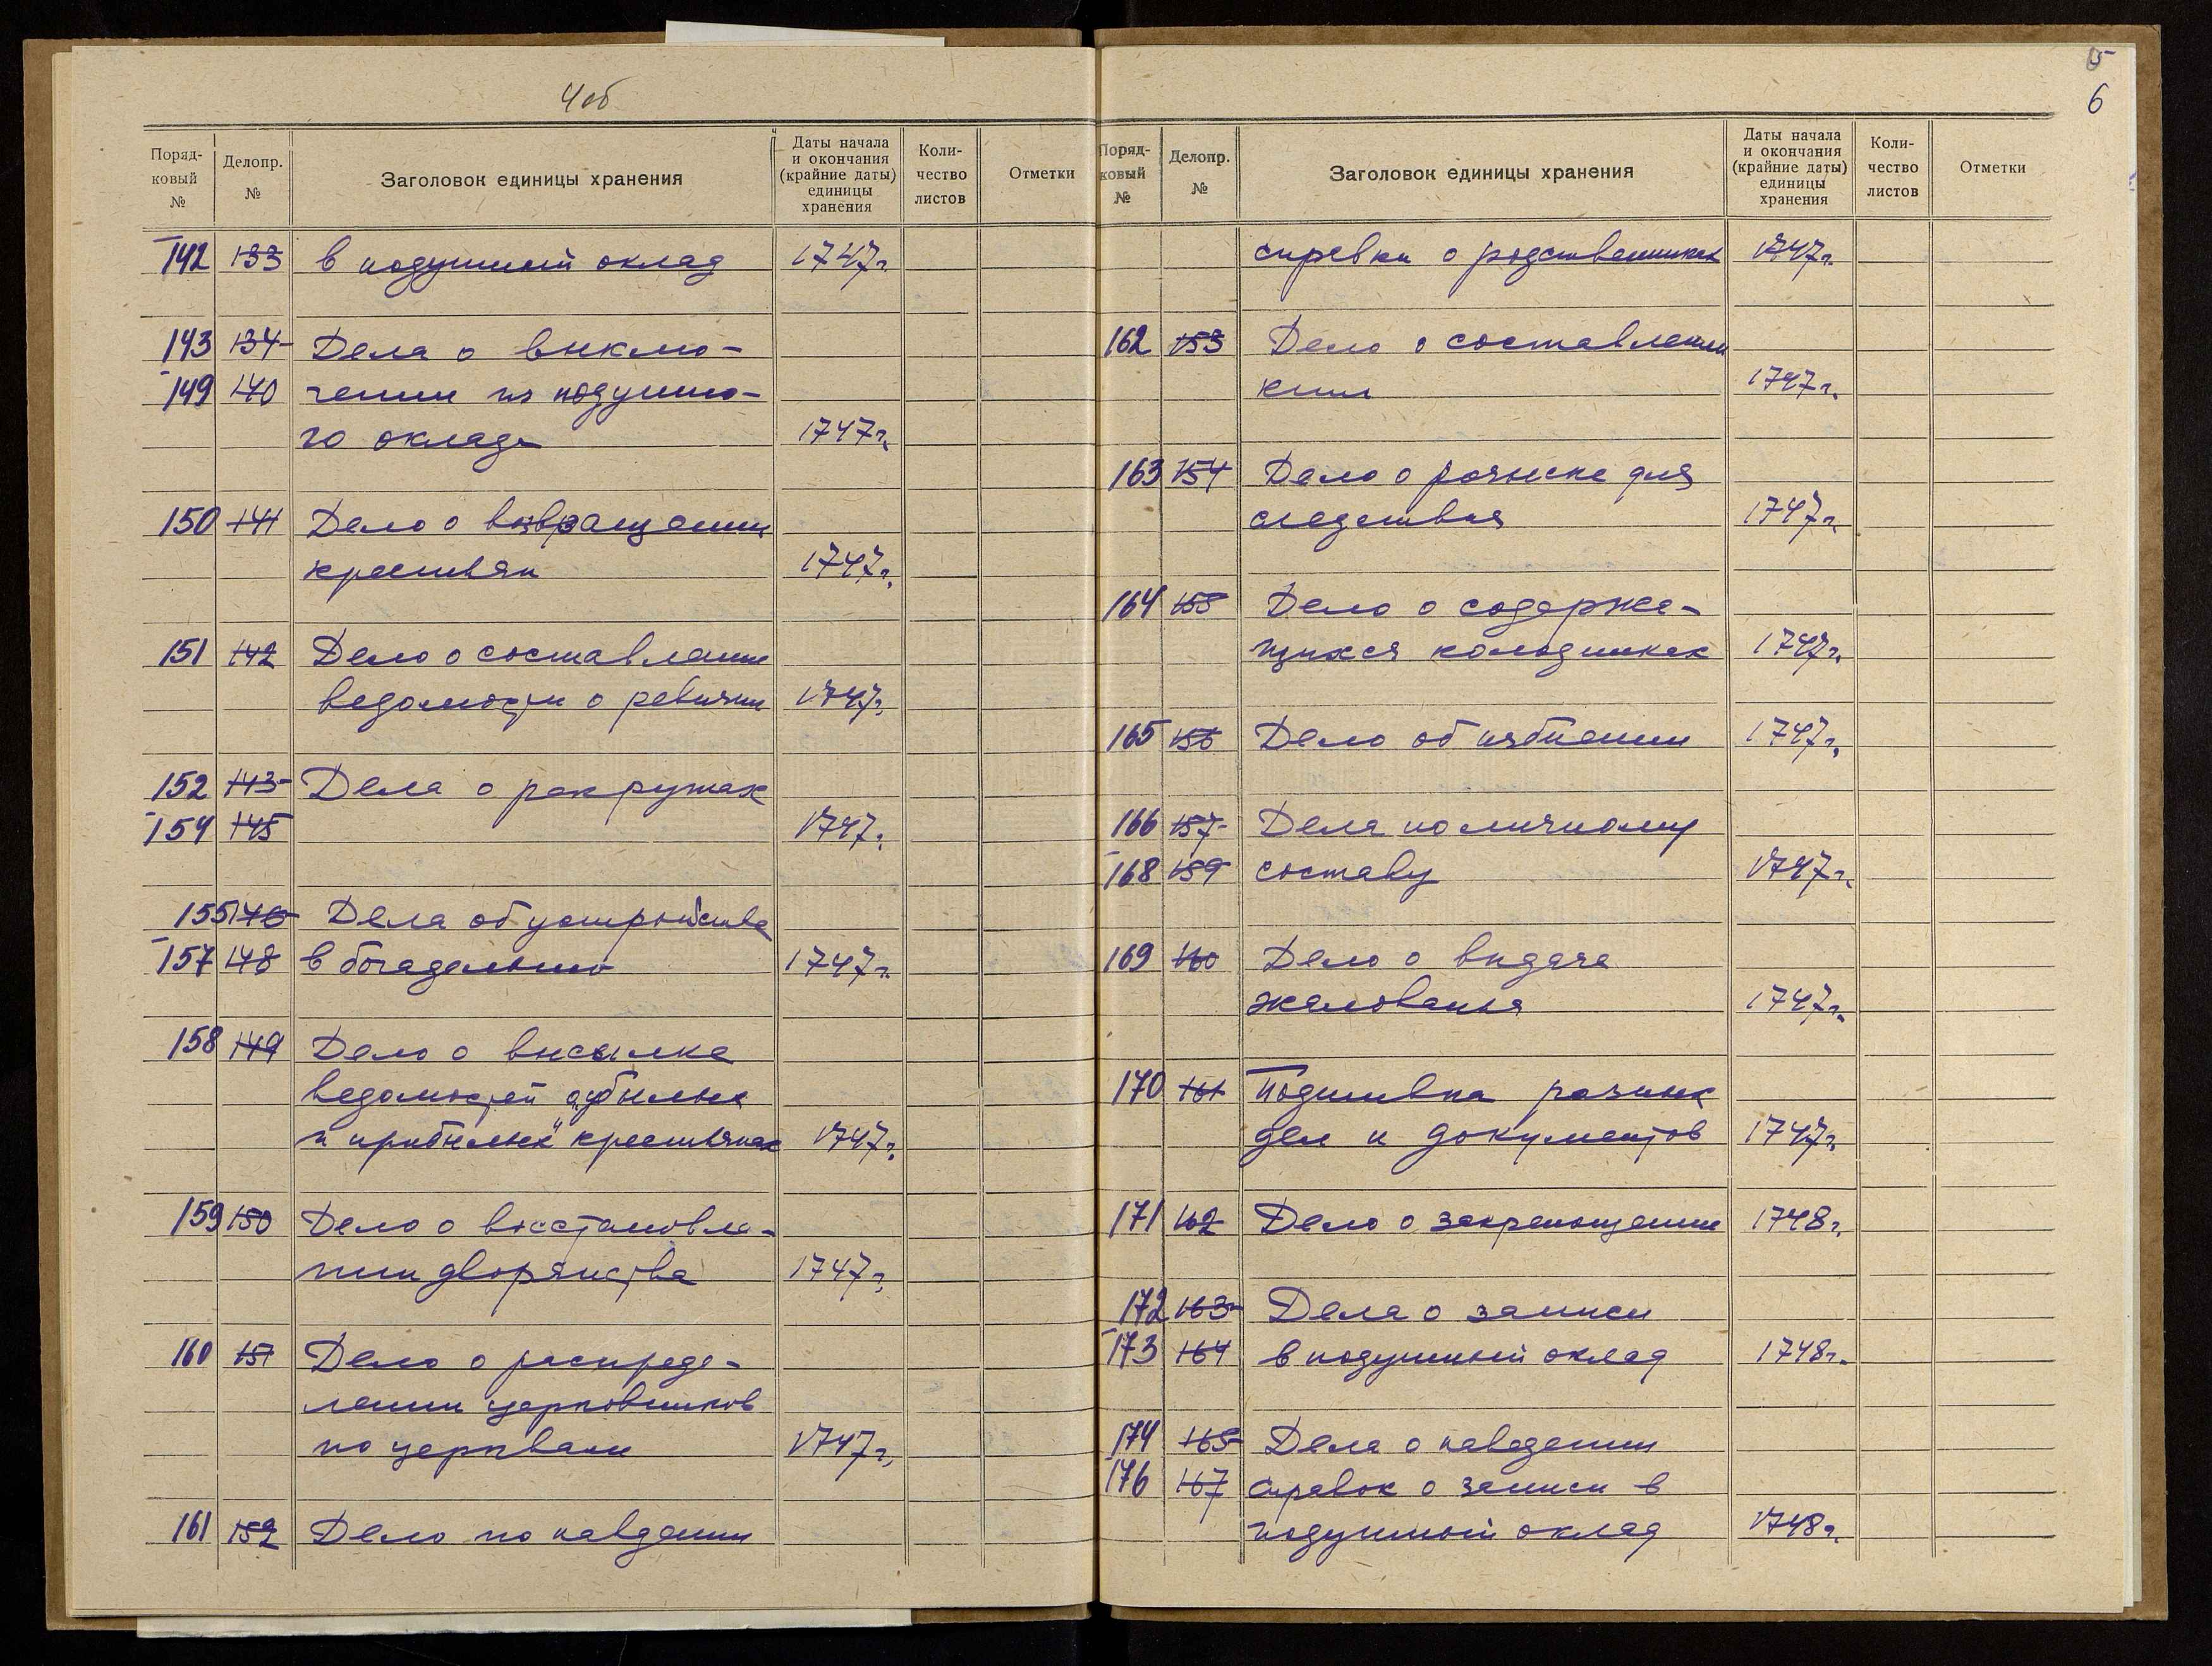 4об
Поряд-
ковый
№
Делопр.
№
Заголовок единицы хранения
Даты начала
и окончания
(крайние даты)
единицы
хранения
Коли-
чество
листов
Отметки
142 133 в подушный оклад 1747г.
143 134- Дела о вклю-
149 140 чении из подушно-
го оклада 1747г.
150 141 Дело о возвращении
крестьян 1747г.
151 142 Дело о составлении
ведомости о ревизии 1747г.
152 143- Дела о рекрутах
154 145 1747г.
155 146- Дела об устройстве
157 148 в богадельню 1747г.
158 149 Дело о высылке
ведомостей о „убылых
и прибылых" крестьянах 1747г.
159 150 Дело о восстановле-
нии дворянства 1747г.
160 151 Дело о распреде-
лении церковников
по церквам 1747г.
161 152 Дело по наведении
5
6
Поряд-
ковый
№
Делопр.
№
Заголовок единицы хранения
Даты начала
и окончания
(крайние даты)
единицы
хранения
Коли-
чество
листов
Отметки
справки о родственниках 1747г.
162 153 Дело о составлении
книг 1747г.
163 154 Дело о розыске для
следствия 1747г.
164 155 Дело о содержа-
щихся колодниках 1747г.
165 156 Дело об избиении 1747г.
166 157- Дела по личному
168 159 составу 1747г.
169 160 Дело о выдаче
жалованья 1747г.
170 161 Подшивка разных
дел и документов 1747г.
171 162 Дело о закрепощении 1748г.
172 163- Дела о записи
173 164 в подушный оклад 1748г.
174 165- Дела о наведении
176 167 справок о записи в
подушный оклад 1748г.